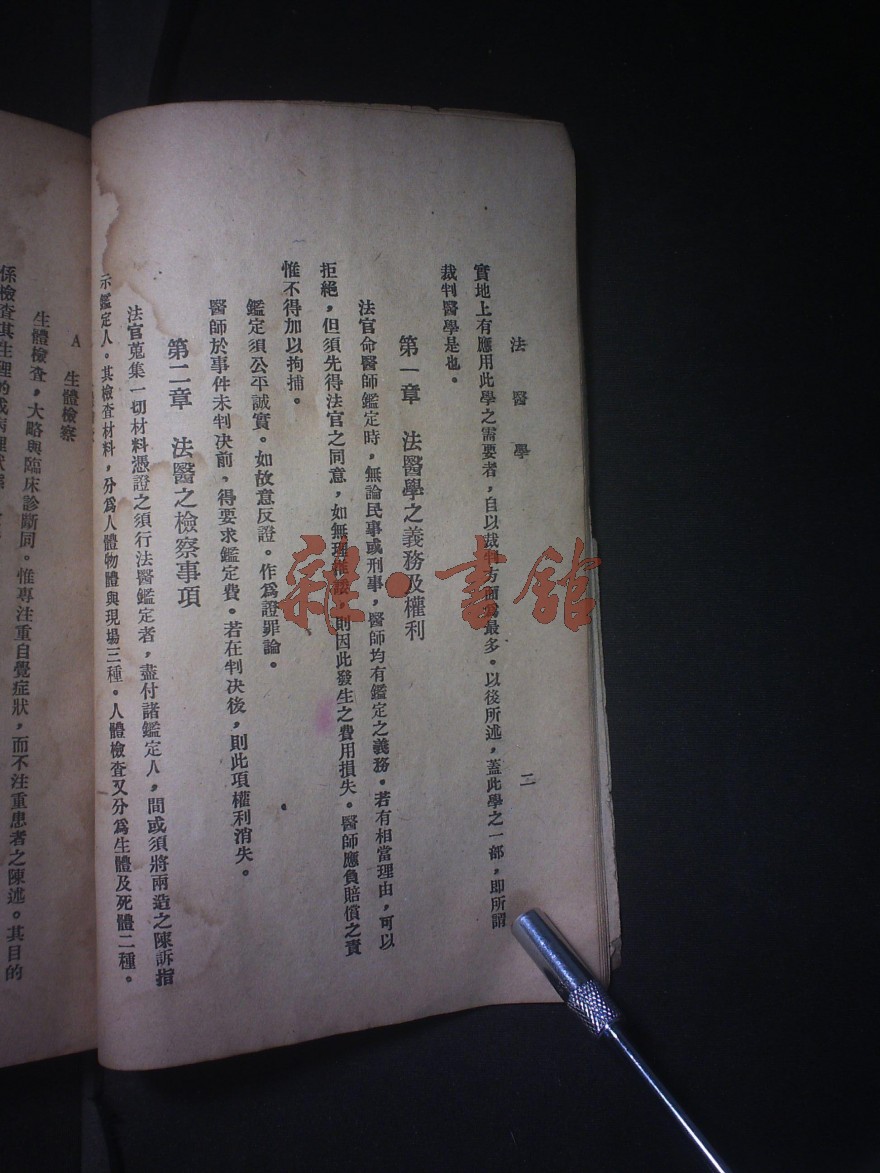 法醫學
二
實地上有應用此學之需要者，自以裁判方面為最多。以後所述，蓋此學之一部，即所謂
裁判醫學是也。
第一章 法醫學之義務及權利
法官命醫師鑑定時，無論民事或刑事，醫師均有鑑定之義務。若有相當理由，可以
拒絕，但須先得法官之同意，如無理推諉，則因此發生之費用損失。醫師應負賠償之責
惟不得加以拘捕。
鑑定須公平誠實。如故意反證。作為證罪論。
醫師於事件未判决前，得要求鑑定費。若在判决後，則此項權利消失。
第二章 法醫之檢察事項
法官蒐集一切材料憑證之須行法醫鑑定者，盡付諸鑑定人，間或須將兩造之陳訴指
示鑑定人。其檢查材料，分爲人體物體與現場三種。人體檢查又分爲生體及死體二種。
A 生體檢察
生體檢查，大略與臨床診斷同。惟專注重自覺症狀，而不注重患者之陳述。其目的
係檢查其生理的或病理
雜·書館